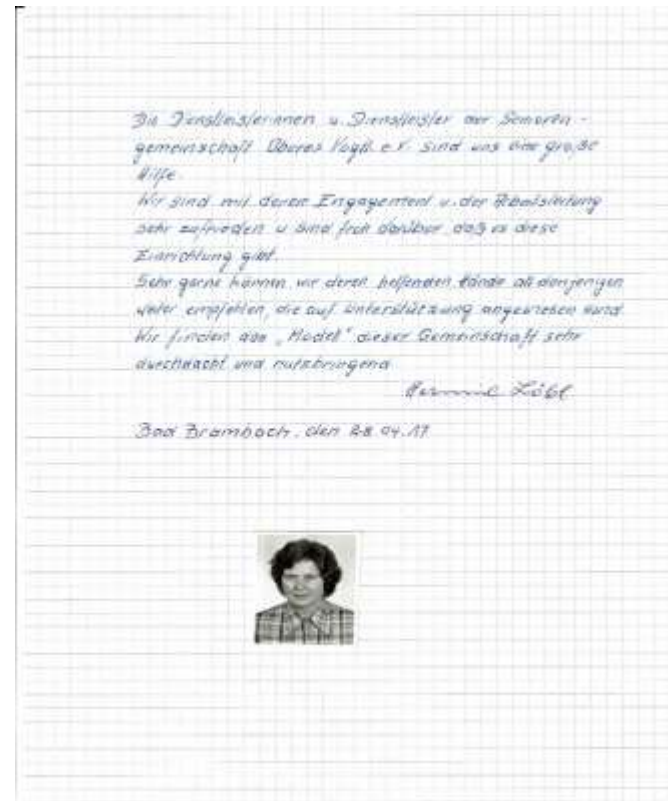 Die Dienstleisterinnen u. Dienstleister der Senioren-
gemeinschaft Oberes Vogtl. e.V. sind uns eine große
Hilfe.
Wir sind mit deren Engagement u. der Arbeitsleistung
sehr zufrieden u. sind froh darüber, daß es diese
Einrichtung gibt.
Sehr gerne können wir deren helfenden Hände all denjenigen
weiter empfehlen, die auf Unterstützung angewiesen sind.
Wir finden das „Modell" dieser Gemeinschaft sehr
durchdacht und nutzbringend
Löbl
Bad Brambach, den 28.04.17